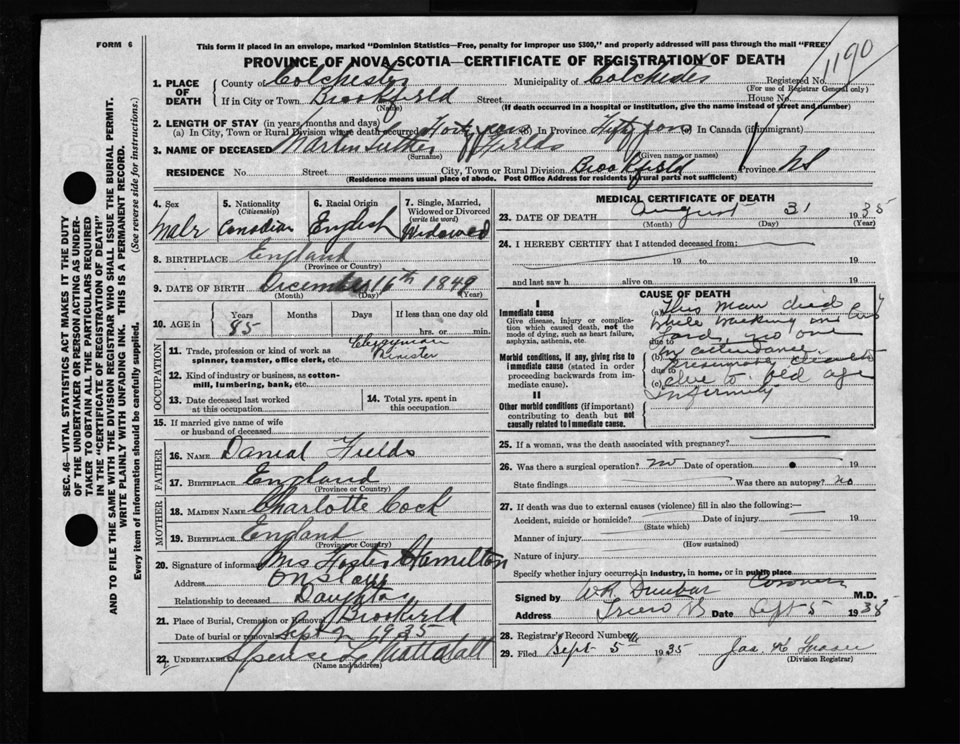 FORM 6
This form if placed in an envelope, marked "Dominion Statistics—Free, penalty for improper use $300," and properly addressed will pass through the mail "FREE"
PROVINCE OF NOVA SCOTIA—CERTIFICATE OF REGISTRATION OF DEATH
1190
1. PLACE OF DEATH County of Colchester Municipality of Colchester Registered No.
(For use of Registrar General only)
If in City or Town Brookfield Street House No.
(Name) (If death occurred in a hospital or institution, give the name instead of street and number)
2. LENGTH OF STAY (in years, months and days)
(a) In City, Town or Rural Division where death occurred Forty years (b) In Province Fifty years In Canada (if immigrant)
3. NAME OF DECEASED Martin Luther Fields
(Surname) (Given name or names)
RESIDENCE No. Street City, Town or Rural Division Brookfield Province NS
(Residence means usual place of abode. Post Office Address for residents in rural parts not sufficient)
4. Sex Male
5. Nationality (Citizenship) Canadian
6. Racial Origin English
7. Single, Married, Widowed or Divorced (write the word) Widowed
8. BIRTHPLACE England
(Province or Country)
9. DATE OF BIRTH December 16th 1849
(Month) (Day) (Year)
10. AGE in Years Months Days If less than one day old
85 hrs. or min.
OCCUPATION
11. Trade, profession or kind of work as spinner, teamster, office clerk, etc. Clergyman Minister
12. Kind of industry or business, as cotton-mill, lumbering, bank, etc.
13. Date deceased last worked at this occupation
14. Total yrs. spent in this occupation
15. If married give name of wife or husband of deceased
FATHER
16. NAME Danial Fields
17. BIRTHPLACE England
(Province or Country)
MOTHER
18. MAIDEN NAME Charlotte Cock
19. BIRTHPLACE England
(Province or Country)
20. Signature of informant Mrs Foster Hamilton
Address Onslow
Relationship to deceased Daughter
21. Place of Burial, Cremation or Removal Brookfield
Date of burial or removal Sept 2 1935
22. UNDERTAKER Spencer L Mattatall
(Name and address)
MEDICAL CERTIFICATE OF DEATH
23. DATE OF DEATH August 31 1935
(Month) (Day) (Year)
24. I HEREBY CERTIFY that I attended deceased from:
19 to 19
and last saw h alive on 19
CAUSE OF DEATH
I
Immediate cause
Give disease, injury or complication which caused death, not the mode of dying, such as heart failure, asphyxia, asthenia, etc.
Morbid conditions, if any, giving rise to immediate cause (stated in order proceeding backwards from immediate cause).
II
Other morbid conditions (if important) contributing to death but not causally related to I immediate cause.
(a) This man died
while walking in
due to yard, no one
(b) in attendance.
due to presumed death
(c) due to old age
infirmity
25. If a woman, was the death associated with pregnancy?
26. Was there a surgical operation? no Date of operation 19
State findings Was there an autopsy? no
27. If death was due to external causes (violence) fill in also the following:—
Accident, suicide or homicide? Date of injury 19
(State which)
Manner of injury
(How sustained)
Nature of injury
Specify whether injury occurred in industry, in home, or in public place
Signed by WR Dunbar Coroner M.D.
Address Truro NS Date Sept 5 1935
28. Registrar's Record Number
29. Filed Sept 5th 1935 Jas. K Fraser
(Division Registrar)
SEC. 46—VITAL STATISTICS ACT MAKES IT THE DUTY
OF THE UNDERTAKER OR PERSON ACTING AS UNDER-
TAKER TO OBTAIN ALL THE PARTICULARS REQUIRED
IN THE "CERTIFICATE OF REGISTRATION OF DEATH"
AND TO FILE THE SAME WITH THE DIVISION REGISTRAR WHO SHALL ISSUE THE BURIAL PERMIT.
WRITE PLAINLY WITH UNFADING INK. THIS IS A PERMANENT RECORD.
Every item of information should be carefully supplied. (See reverse side for instructions.)